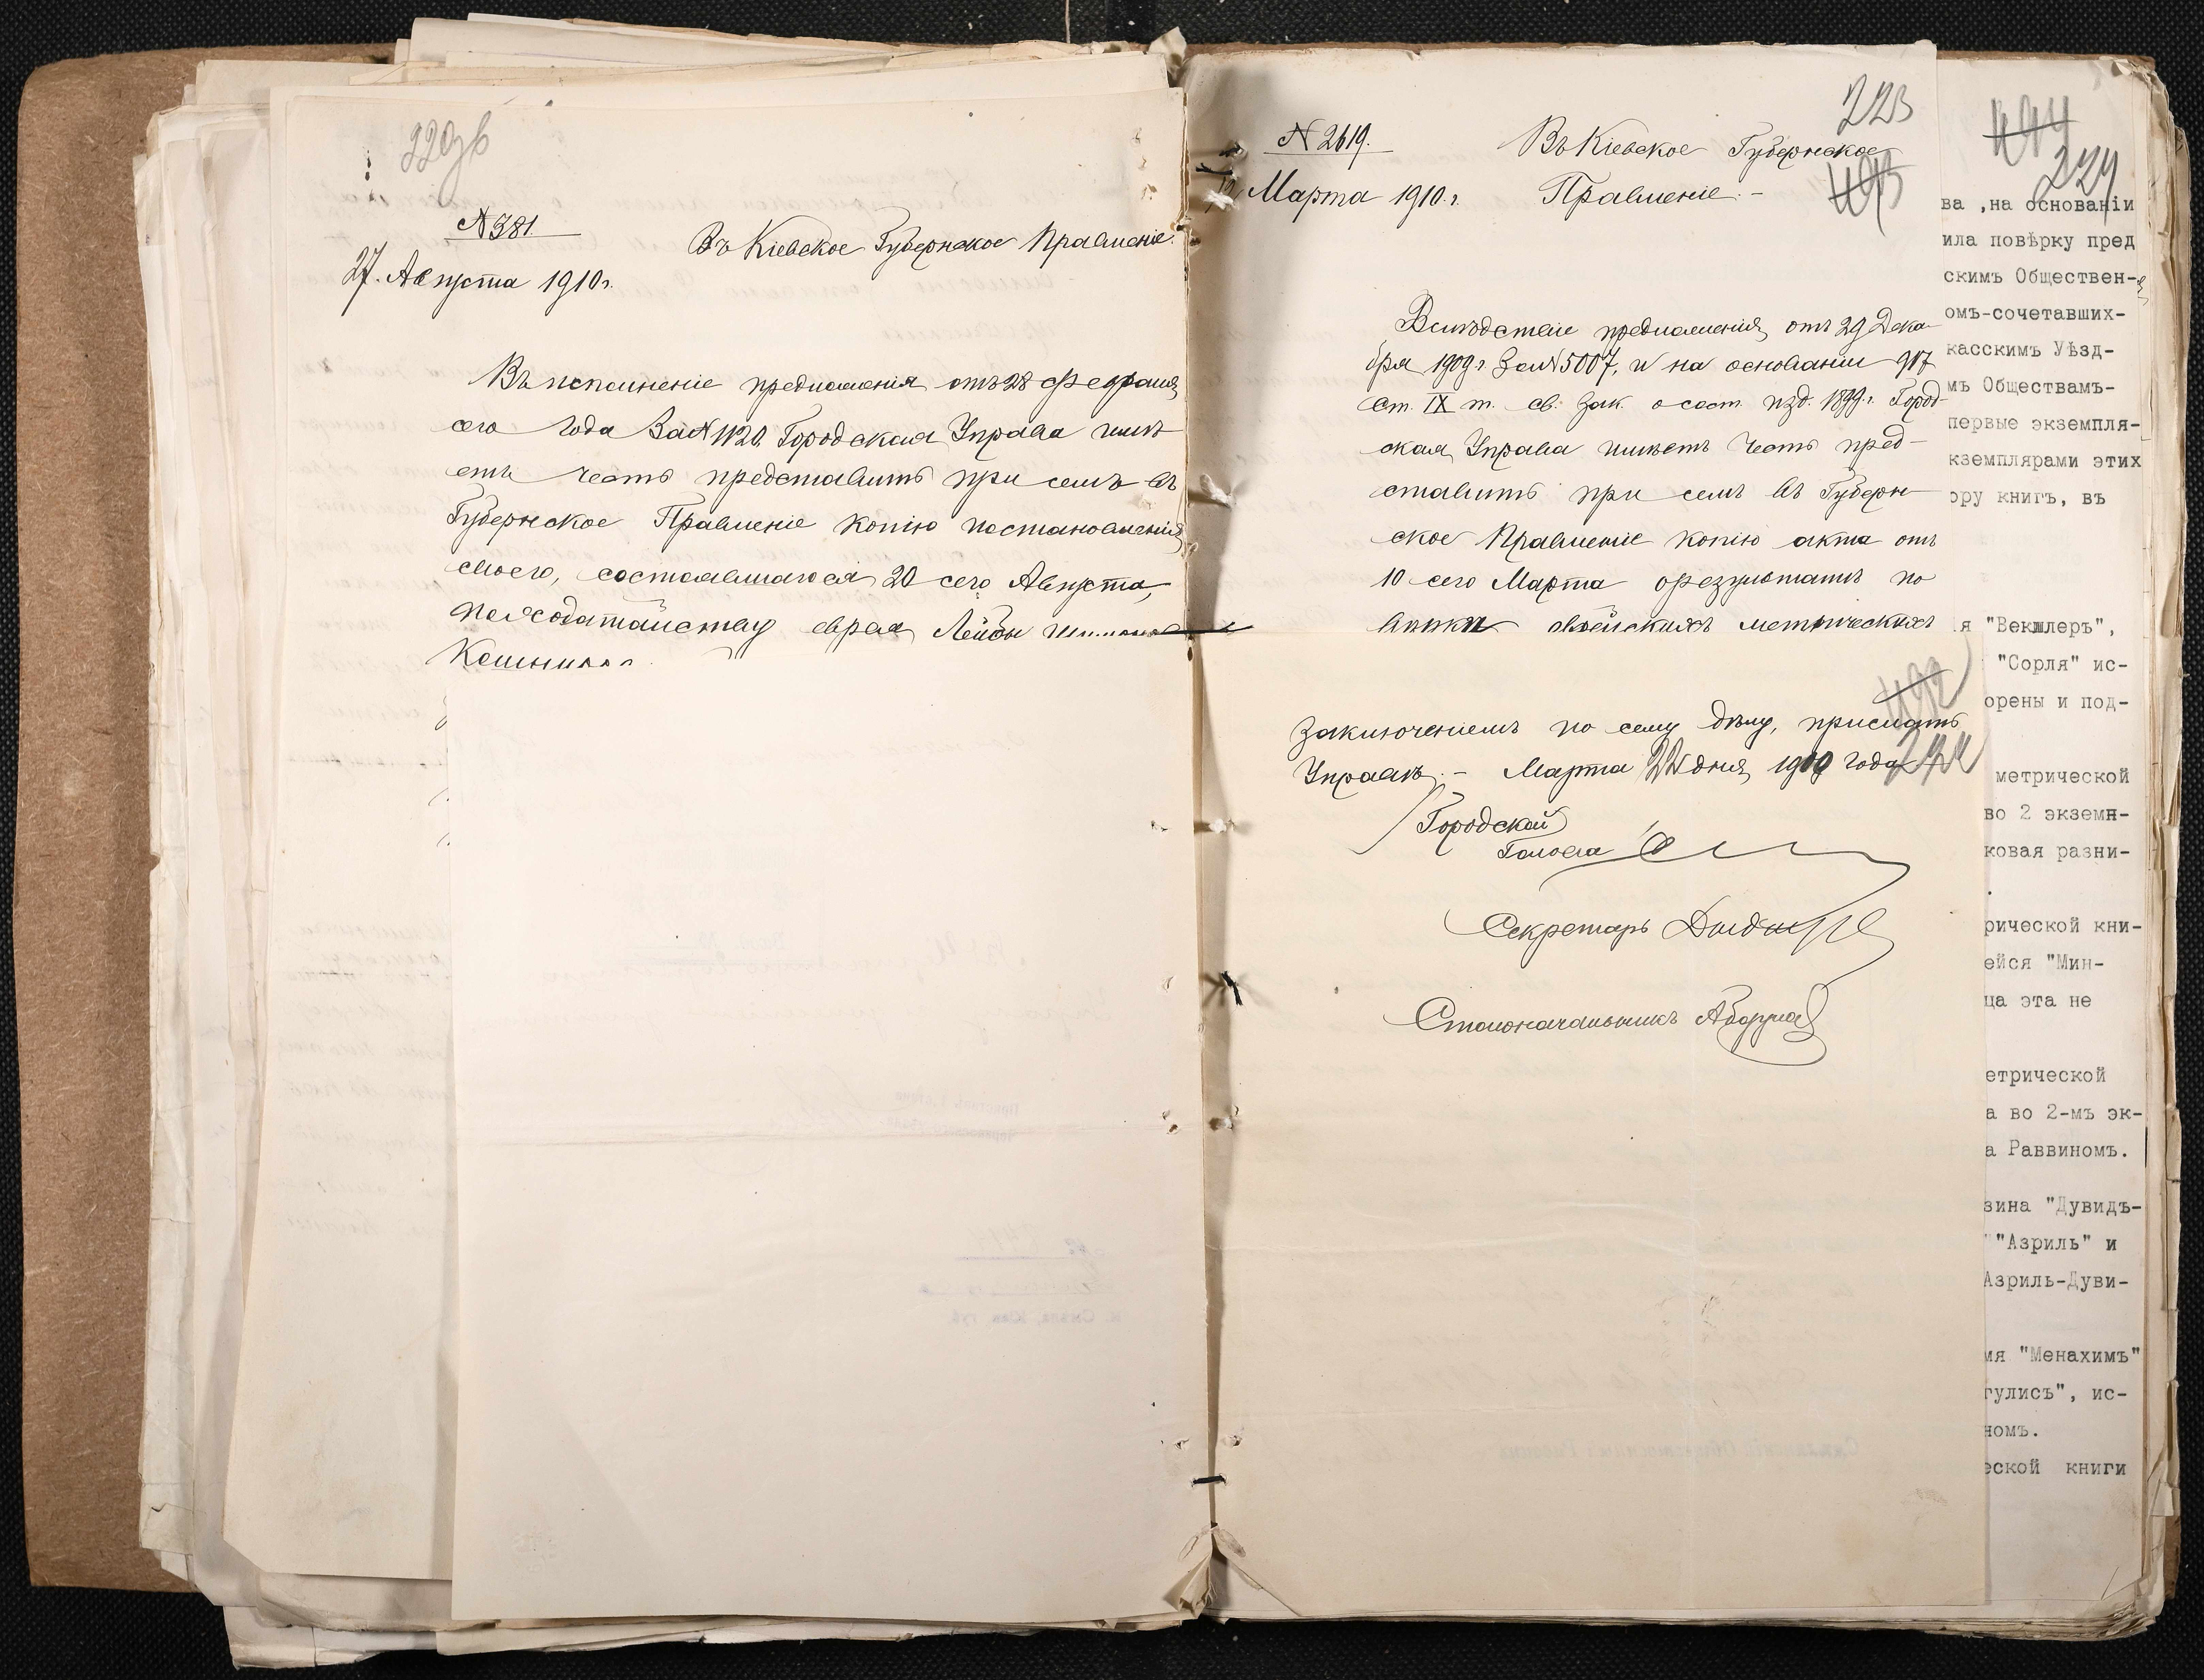 220об
№ 381
27. Августа 1910 г.
Въ Кіевское Губернское Правленіе.
Въ исполненіе предложенія отъ 28 Февраля
сего года за № 1120, Городская Управа имѣ
етъ честь представить при семъ въ
Губернское Правленіе копію постановленія
своего, состоявшагося 20 сего Августа,
по ходатайству еврея Лейбы
223
№ 2619.
12 Марта 1910 г.
Въ Кіевское Губернское
Правленіе.-
Вслѣдствіе предложенія, отъ 29 Дека-
бря 1909 г. за № 5007, и на основаніи 917
ст. IX т. св. зак. о сост. изд. 1899 г. Город-
ская Управа имѣетъ честь пред-
ставить при семъ въ Губерн-
ское Правленіе копію акта отъ
10 сего Марта о результатѣ по
вѣрки еврейскихъ метрическихъ
492
заключеніемъ по сему дѣлу, прислать
Управѣ.- Марта 22 дня 1910 года
Городской
Голова
Секретарь
Столоначальникъ
494
224
ва ,на основаніи
ила повѣрку пред
скимъ Обществен-
омъ-сочетавших-
касскимъ Уѣзд-
мъ Обществамъ-
первые экземпля-
кземплярами этих
ору книгъ, въ
я "Векшлеръ",
"Сорля" ис-
орены и под-
метрической
во 2 экземп-
ковая разни-
.
рической кни-
ейся "Мин-
ца эта не
етрической
а во 2-мъ эк-
а Раввиномъ.
зина "Дувидъ-
"Азриль" и
Азриль-Дуви-
мя "Менахимъ"
гулисъ", ис-
номъ.
еской книги